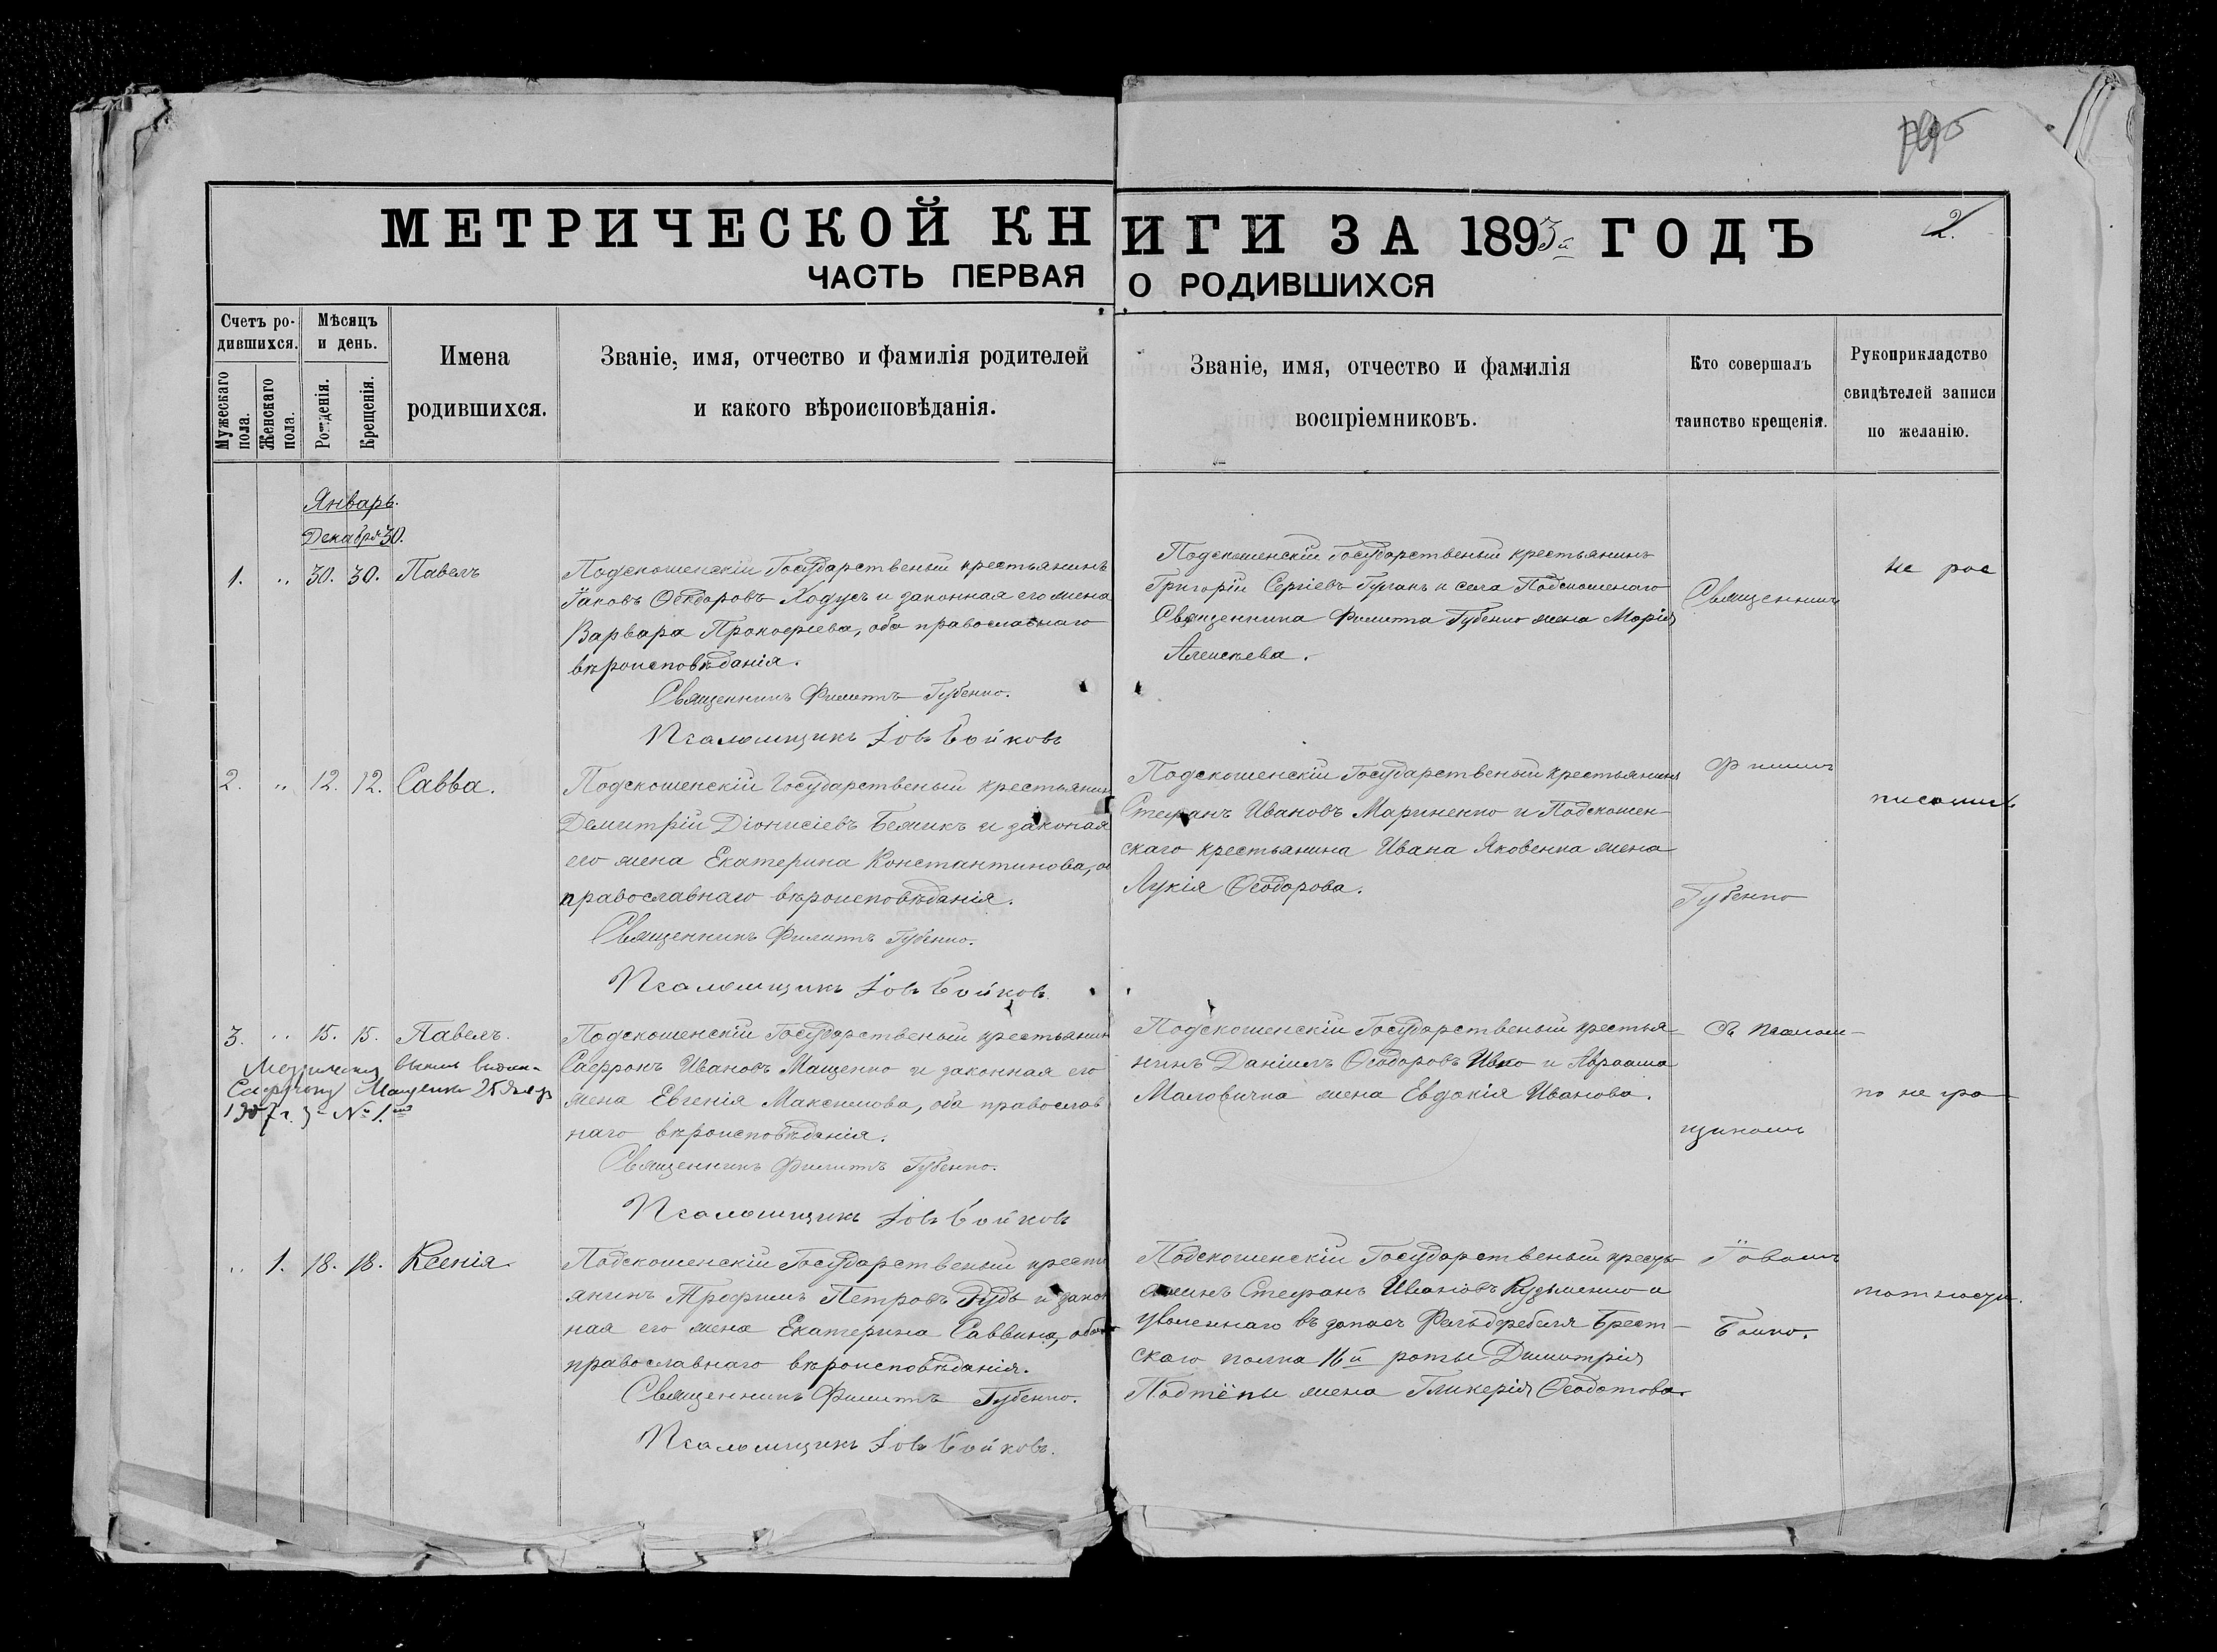 МЕТРИЧЕСКОЙ КНИГИ ЗА 1893й ГОДЪ
2.
ЧАСТЬ ПЕРВАЯ О РОДИВШИХСЯ
Счетъ ро-
дившихся.
Мужескаго пола.
Женскаго пола.
Мѣсяцъ
и день.
Рожденія.
Крещенія.
Имена
родившихся.
Званіе, имя, отчество и фамилія родителей
и какого вѣроисповѣданія.
Званіе, имя, отчество и фамилія
воспріемниковъ.
Кто совершалъ
таинство крещенія.
Рукоприкладство
свидѣтелей записи
по желанію.
Январь.
Декабря 30.
1. „ 30. 30. Павелъ
Подскошенскій Государственый крестьянинъ
Іаковъ Ѳеодоровъ Ходусъ и законная его жена
Варвара Прокофіева, оба православнаго
вѣроисповѣданія.
Священникъ Филиппъ Губенко.
Псаломщикъ Іовъ Бойковъ
Подскошенскій Государственый крестьянинъ
Григорій Сергіевъ и села Подскошенаго
Священника Филиппа Губенко жена Марія
Алексѣева.
2. „ 12. 12. Савва.
Подскошенскій Государственый крестьянин
Демитрій Діонисіевъ и законая
его жена Екатерина Константинова, об
православнаго вѣроисповѣданія.
Священникъ Филиппъ Губенко.
Псаломщикъ Іовъ Бойковъ.
Подскошенскій Государственый крестьянинъ
Стефанъ Ивановъ Мариненко и Подскошен-
скаго крестьянина Ивана Яковенка жена
Лукія Ѳеодорова.
3. „ 15. 15. Павелъ.
Сафрону Мащенко 25
1907 г. за № 1.
Подскошенскій Государственый крестьянин
Сафронъ Ивановъ Мащенко и законная его
жена Евгенія Максимова, оба православ
наго вѣроисповѣданія.
Священникъ Филиппъ Губенко.
Псаломщикъ Іовъ Бойковъ
Подскошенскій Государственый крестья-
нинъ Даніилъ Ѳеодоровъ Ивко и Авраама
Маловичка жена Евдокія Иванова.
„ 1. 18. 18. Ксенія.
Подскошенскій Государственый крестя
янинъ Трофимъ Петровъ Рудь и закон
ная его жена Екатерина Саввина, оба
православнаго вѣроисповѣданія.
Священникъ Филиппъ Губенко.
Псаломщикъ Іовъ Бойковъ.
Подскошенскій Государственый кресть-
янинъ Стефанъ Ивановъ Кузьменко и
уволеннаго въ запасъ Фельдфебеля Брест-
скаго полка 16й роты Димитрія
жена Гликерія Ѳеодотова.
Священникъ
Филиппъ
Губенко
съ псалом-
щикомъ
Іовомъ
Бойко.
не рос
писались
по не гра-
мотности.